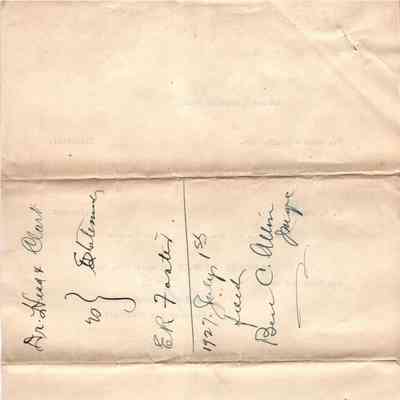 Dr. Hugh Clark
vs } Statement
E R Foster.
1927. July 1st
filed
Ben C. Allin
Judge